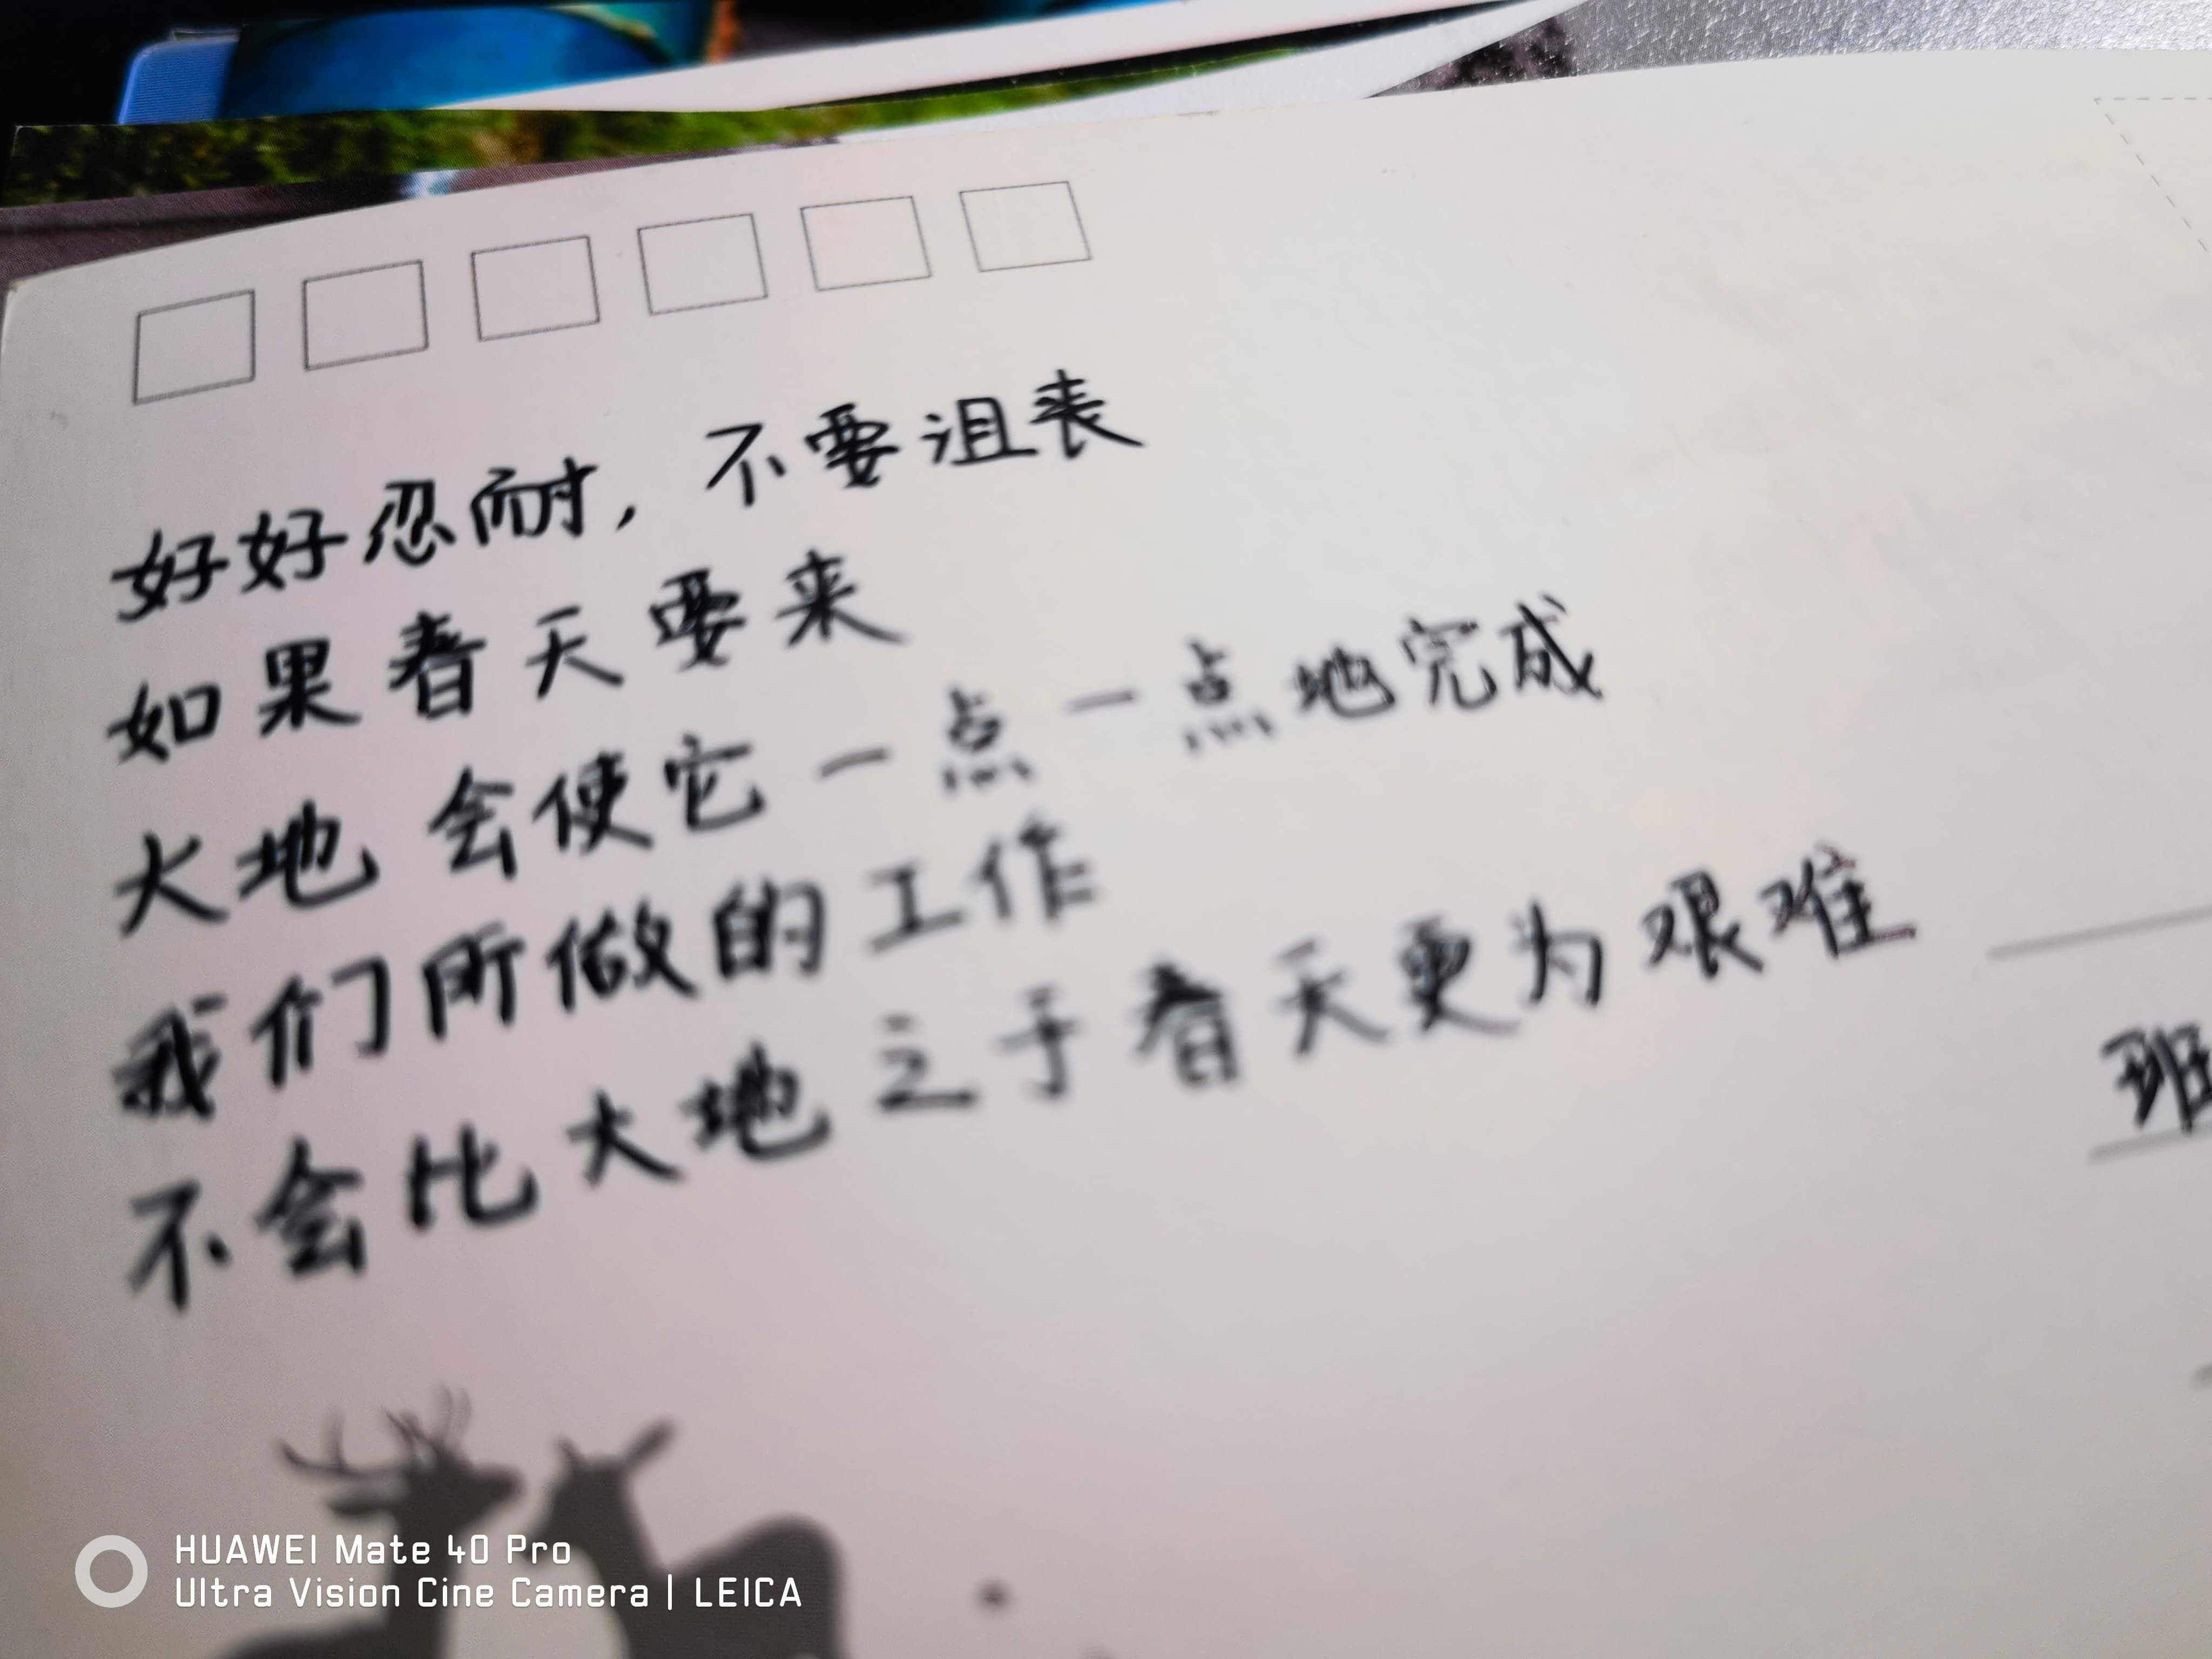 好好忍耐，不要沮丧
如果春天要来
大地会使它一点一点地完成
我们所做的工作
不会比大地之于春天更为艰难
班
HUAWEI Mate 40 Pro
Ultra Vision Cine Camera | LEICA